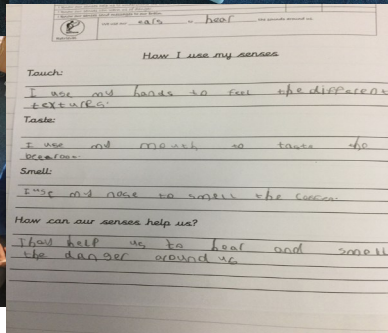 ears hear
How I use my senses
Touch:
I use my hands to feel the different
textures.
Taste:
I use my mouth to taste the
Smell:
I use my nose to smell the
How can our senses help us?
They help us to hear and smell
the danger around us